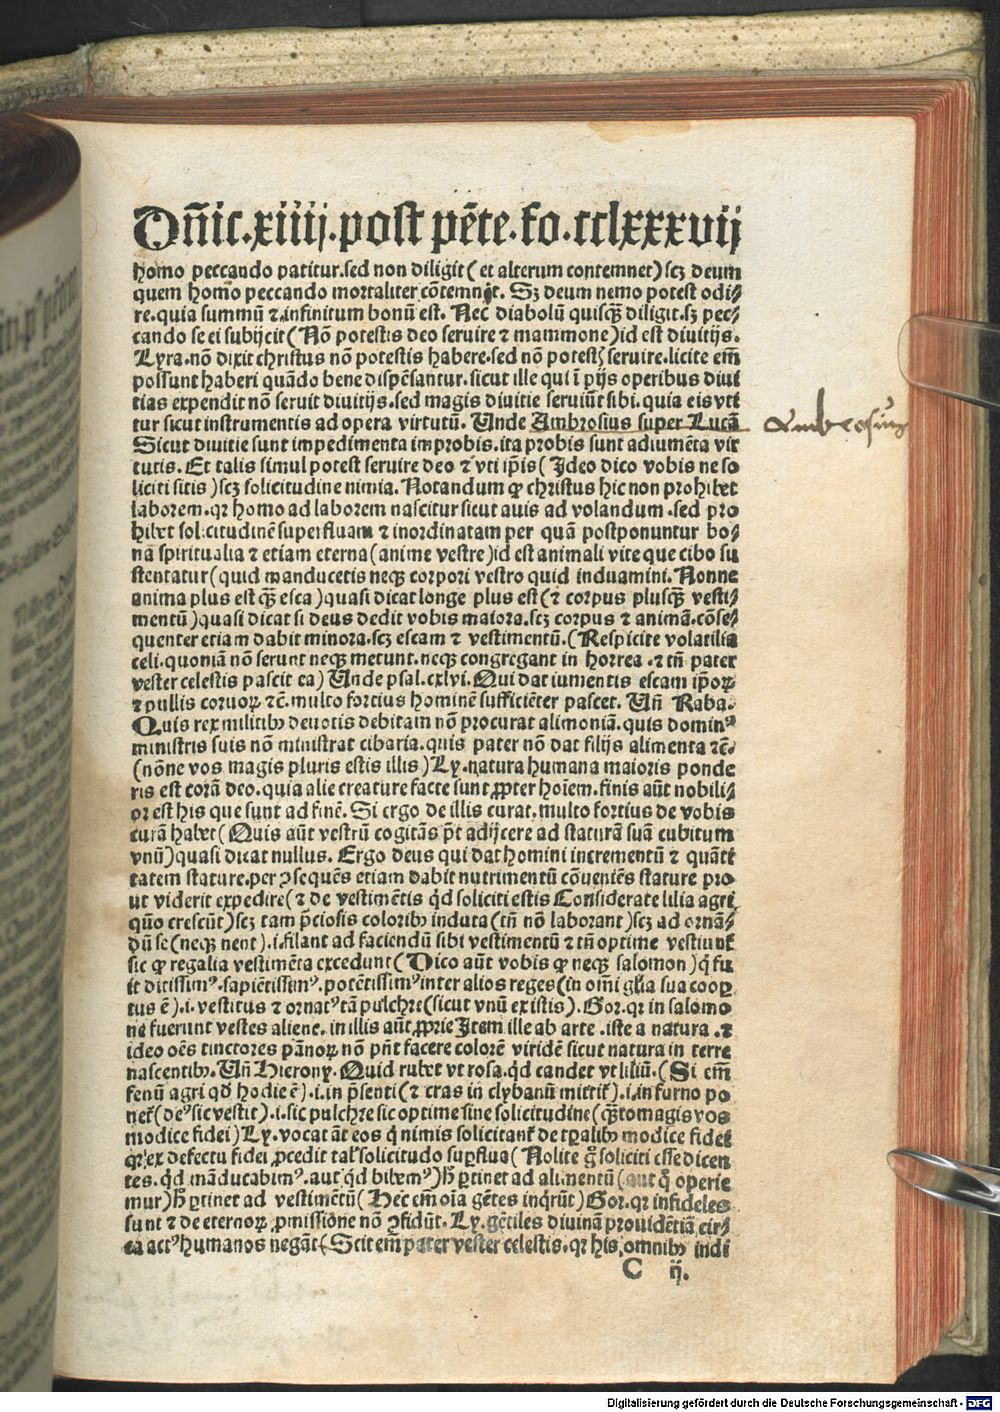 Dñic.xiiij.post pẽte.fo.cclxxxvij
homo peccando patitur.sed non diligit (et alterum contemnet) scꝫ deum
quem homo peccando mortaliter cõtemnit. Sꝫ deum nemo potest odi⸗
re.quia summũ ⁊ infinitum bonũ est. Nec diabolũ quisqꝫ diligit.sꝫ pec⸗
cando se ei subijcit (Nõ potestis deo seruire ⁊ mammone) id est diuitijs.
Lyra.nõ dixit christus nõ potestis habere.sed nõ potestꝭ seruire.licite em̃
possunt haberi quãdo bene dispẽsantur.sicut ille qui ĩ pijs operibus diui
tias expendit nõ seruit diuitijs.sed magis diuitie seruiũt sibi.quia eis vti
tur sicut instrumentis ad opera virtutũ. Unde Ambrosius super Lucã
Ambrosius
Sicut diuitie sunt impedimenta improbis.ita probis sunt adiumẽta vir
tutis. Et talis simul potest seruire deo ⁊ vti ip̃is (Ideo dico vobis ne so
liciti sitis) scꝫ solicitudine nimia. Notandum ꝙ christus hic non prohibet
laborem.qꝛ homo ad laborem nascitur sicut auis ad volandum.sed pro
hibet solicitudinẽ superfluam ⁊ inordinatam per quã postponuntur bo⸗
nã spiritualia ⁊ etiam eterna (anime vestre) id est animali vite que cibo su
stentatur (quid manducetis neqꝫ corpori vestro quid induamini. Nonne
anima plus est qꝫ̃ esca) quasi dicat longe plus est (⁊ corpus plusqꝫ̃ vesti⸗
mentũ) quasi dicat si deus dedit vobis maiora.scꝫ corpus ⁊ animã.cõse⸗
quenter etiam dabit minora.scꝫ escam ⁊ vestimentũ. (Respicite volatilia
celi.quoniã nõ serunt neqꝫ metunt.neqꝫ congregant in horrea.⁊ tñ pater
vester celestis pascit ea) Unde psal.cxlvi. Qui dat iumentis escam ip̃oꝝ
⁊ pullis coruoꝝ ⁊c̃.multo fortius hominẽ sufficiẽter pascet. Uñ Raba.
Quis rex militibꝰ deuotis debitam nõ procurat alimoniã.quis dominꝰ
ministris suis nõ ministrat cibaria.quis pater nõ dat filijs alimenta ⁊c̃.
(nõne vos magis pluris estis illis) Ly.natura humana maioris ponde
ris est corã deo.quia alie creature facte sunt ꝓpter hoiẽm.finis aũt nobili⸗
or est his que sunt ad finẽ. Si ergo de illis curat.multo fortius de vobis
curã habet (Quis aũt vestrũ cogitãs p̃t adijcere ad staturã suã cubitum
vnũ) quasi dicat nullus. Ergo deus qui dat homini incrementũ ⁊ quãti
tatem stature.per ↄ̃sequẽs etiam dabit nutrimentũ cõueniẽs stature pro
ut viderit expedire (⁊ de vestimẽtis q̃d soliciti estis Considerate lilia agri
quõ crescũt) scꝫ tam p̃ciosis coloribꝰ induta (tñ nõ laborant) scꝫ ad ornã⸗
dũ se (neqꝫ nent).i.filant ad faciendũ sibi vestimentũ ⁊ tñ optime vestiunt̃
sic ꝙ regalia vestimẽta excedunt (Dico aũt vobis ꝙ neqꝫ salomon) q̃ fu
it ditissimꝰ.sapiẽtissimꝰ.potẽtissimꝰ inter alios reges (in om̃i gl̃ia sua cooꝑ
tus ẽ).i.vestitus ⁊ ornatꝰ tã pulchre (sicut vnũ ex istis). Gor.qꝛ in salomo
ne fuerunt vestes aliene.in illis aũt ꝓprie Item ille ab arte.iste a natura.⁊
ideo oẽs tinctores pãnoꝝ nõ pñt facere colorẽ viridẽ sicut natura in terre
nascentibꝰ. Uñ Hierony. Quid rubet vt rosa.q̃d candet vt liliũ. (Si em̃
fenũ agri qd̃ hodie ẽ).i.in p̃senti (⁊ cras in clybanũ mittit̃).i.in furno po
net̃ (deꝰ sic vestit).i.sic pulchre sic optime sine solicitudine (qꝫ̃to magis vos
modice fidei) Ly.vocat aũt eos q̃ nimis solicitant̃ de tꝑalibꝰ modice fidei
qꝛ ex defectu fidei ꝓcedit tal̃ solicitudo suꝑflua (Nolite g̃ soliciti esse dicen
tes.q̃d mãducabimꝰ.aut q̃d bibemꝰ) h̃ ꝑtinet ad alimentũ (aut q̃ operie
mur) h̃ ꝑtinet ad vestimẽtũ (Hec em̃ oĩa gẽtes inq̃rũt) Gor.qꝛ infideles
sunt ⁊ de eternoꝝ ꝓmissione nõ ↄ̃fidũt. Ly.gẽtiles diuinã prouidẽtiã cir⸗
ca actꝰ humanos negãt (Scit em̃ pater vester celestis.qꝛ his omnibꝰ indi
C ij.
Digitalisierung gefördert durch die Deutsche Forschungsgemeinschaft - DFG